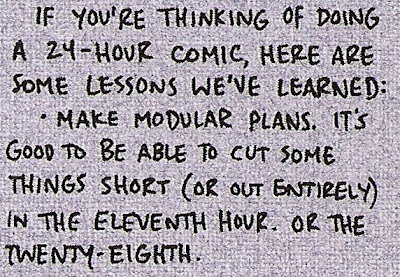 IF YOU'RE THINKING OF DOING
A 24-HOUR COMIC, HERE ARE
SOME LESSONS WE'VE LEARNED:
• MAKE MODULAR PLANS. IT'S
GOOD TO BE ABLE TO CUT SOME
THINGS SHORT (OR OUT ENTIRELY)
IN THE ELEVENTH HOUR. OR THE
TWENTY-EIGHTH.